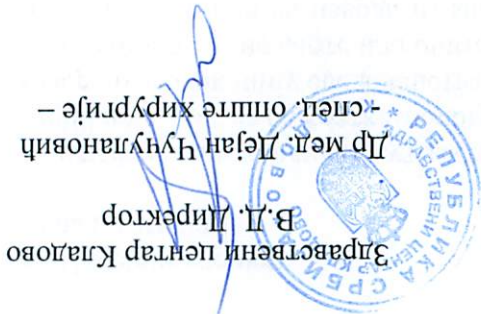 Здравствени центар Кладово
В.Д. Директор
Др мед. Дејан Чучулановић
-спец. опште хирургије –
РЕПУБЛИКА СРБИЈА
ЗДРАВСТВЕНИ ЦЕНТАР КЛАДОВО
КЛАДОВО